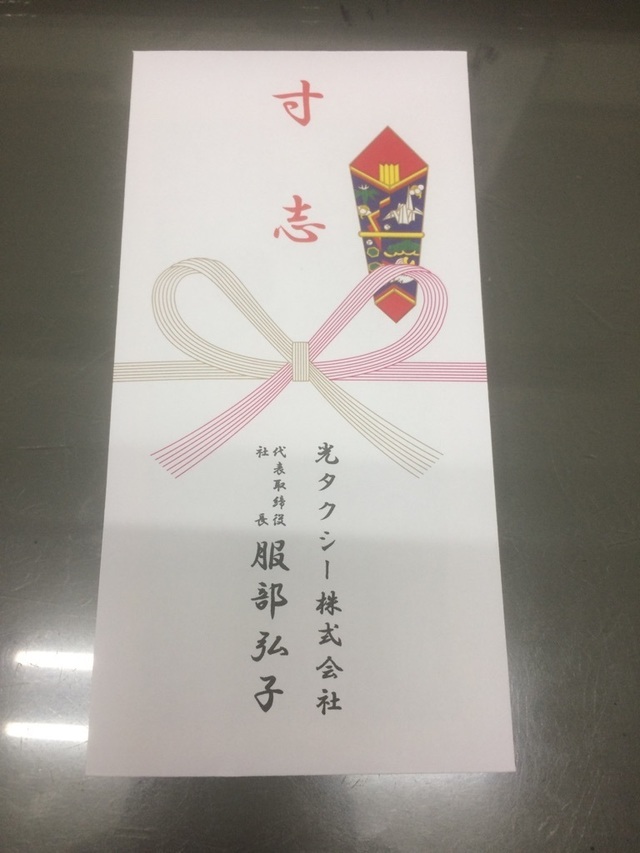 寸志
光タクシー株式会社
代表取締役
社長
服部弘子